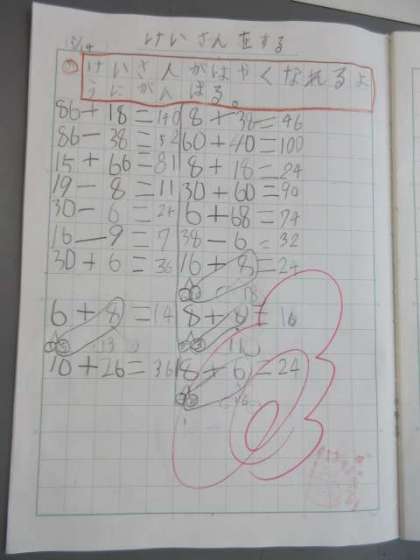 けいさんをする
5/14
め けいさんがはやくなれるよ
うにがんばる。
86+18=140 8+36=46
86-38=52 60+40=100
15+66=81 8+18=24
19-8=11 30+60=90
30-6=24 6+68=74
16-9=7 38-6=32
30+6=36 16+8=24
18
6+8=14 8+8=16
13
10+26=36 18+6=24